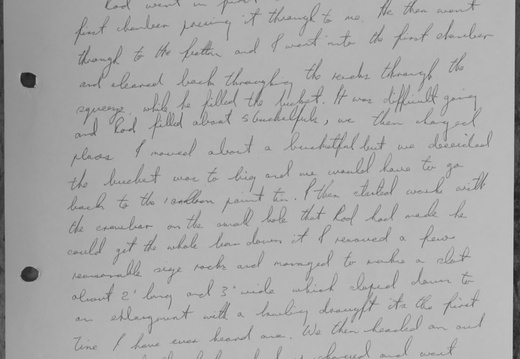 Rod went in first
first chamber passing it through to me. He then went
through to the further and I went into the first chamber
and cleared back throughing the rocks through the
squeeze, while he filled the bucket. It was difficult going
and Rod filled about 5 bucketfuls, we then changed
places I moved about a bucketful but we decided
the bucket was to big and we would have to go
back to the paint tin. I then started work with
the crowbar on the small hole that Rod had made he
could get the whole bar down it I removed a few
reasonable size rocks and managed to make a slot
about 2' long and 3" wide which sloped down to
an enlargement with a howling draught its the first
time I have ever heard one. We then headed on out
changed and went